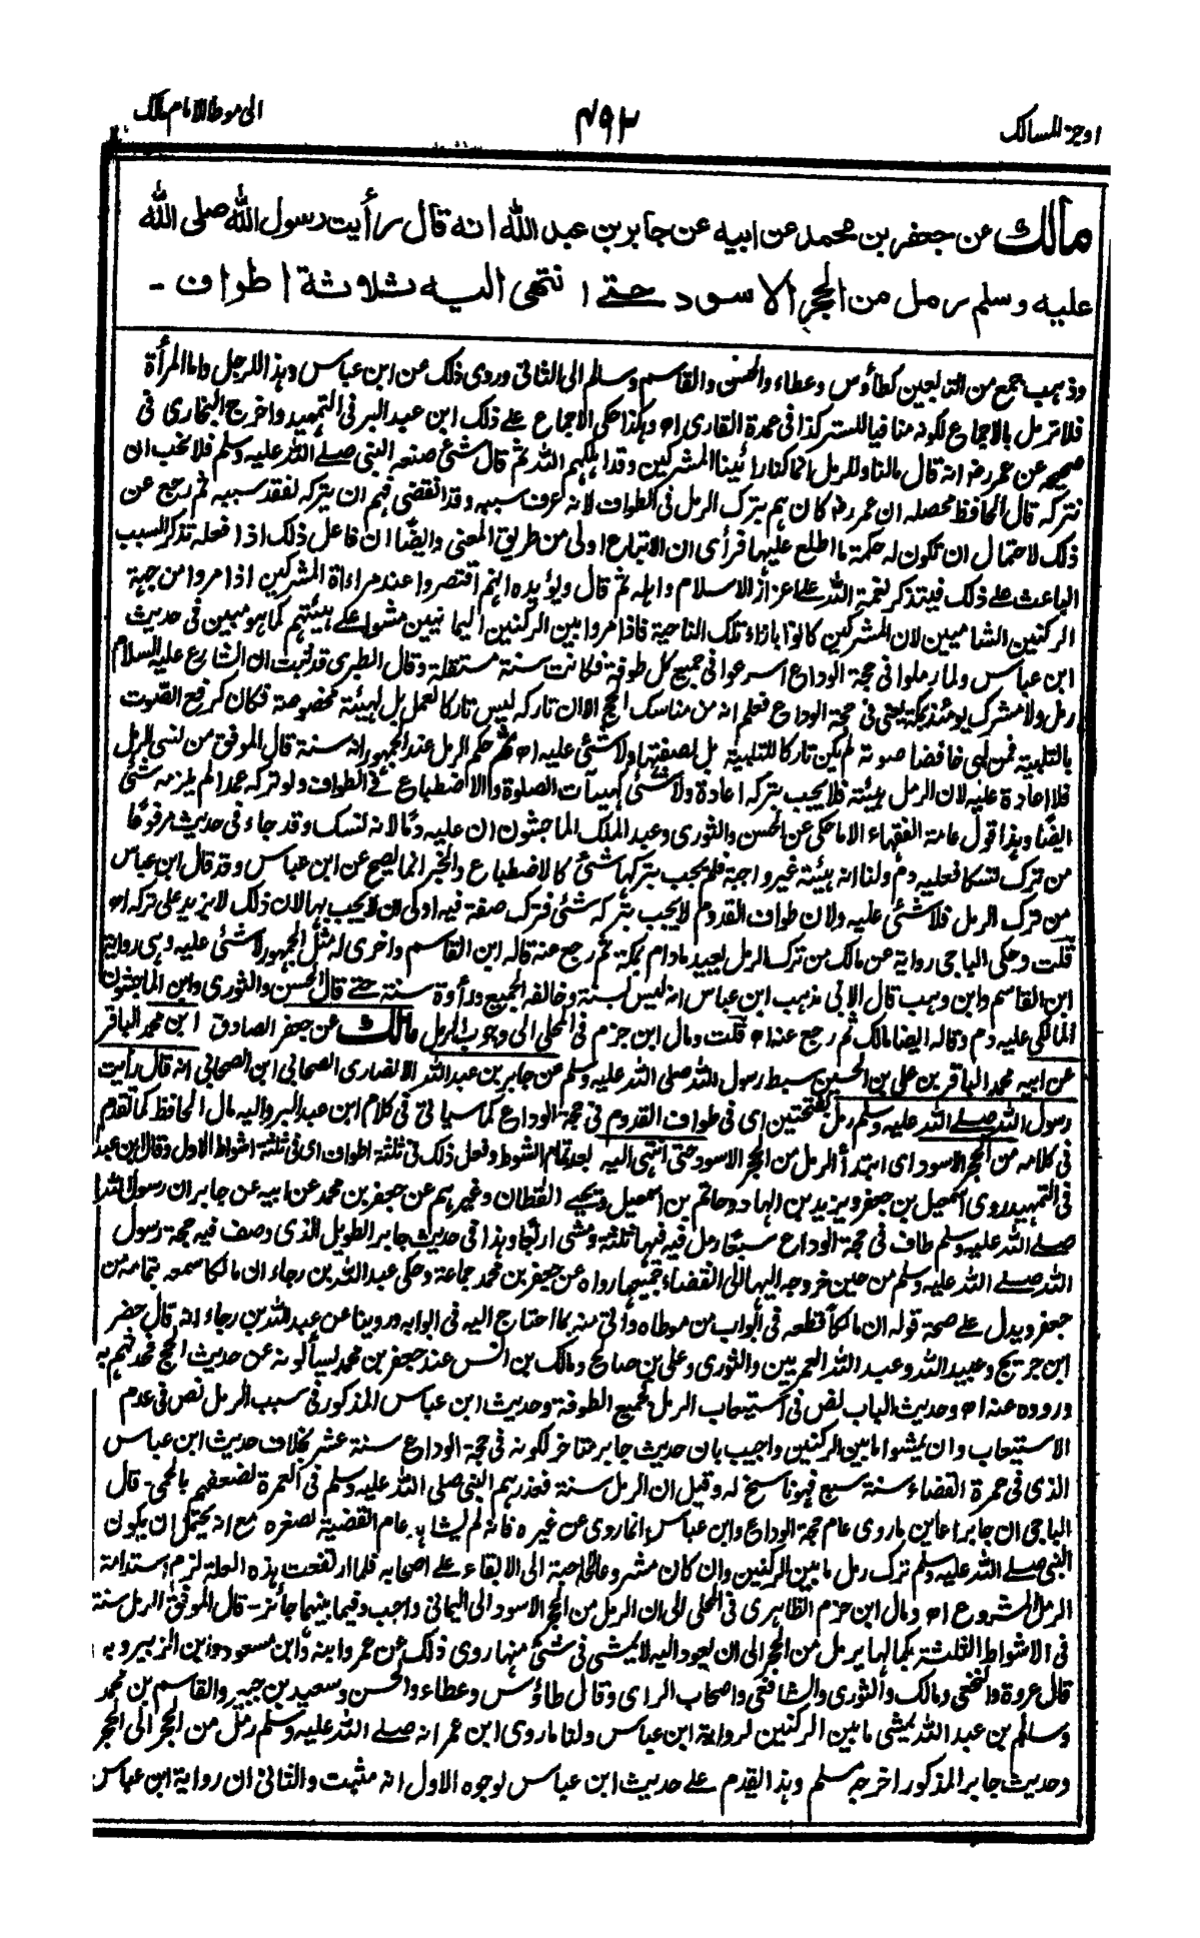 اوجز المسالك
٤٩٢
الى موطا الامام مالك
مالك عن جعفر بن محمد عن ابيه عن جابر بن عبد الله انه قال رأيت رسول الله صلى الله
عليه وسلم رمل من الحجر الاسود حتى انتهى اليه ثلاثة اطواف -
وذهب جمع من التابعين كطاؤس وعطاء والحسن والقاسم وسالم الى الثانى وروى ذلك عن ابن عباس وهذا للرجل واما المرأة
فلا ترمل بالاجماع لكونه منافيا للستر كذا فى عمدة القارى اه وهكذا حكى الاجماع على ذلك ابن عبد البر فى التمهيد واخرج البخارى فى
صحيحه عن عمر رض انه قال مالنا وللرمل انما كنا رائينا المشركين وقد اهلكهم الله ثم قال شئ صنعه النبى صلى الله عليه وسلم فلا نحب ان
نتركه قال الحافظ محصله ان عمر رض كان هم بترك الرمل فى الطواف لانه عرف سببه وقد انقضى فهم ان يتركه لفقد سببه ثم رجع عن
ذلك لاحتمال ان تكون له حكمة ما اطلع عليها فرأى ان الاتباع اولى من طريق المعنى وايضا ان فاعل ذلك اذا فعله تذكر السبب
الباعث على ذلك فيتذكر نعمة الله على اعزاز الاسلام واهله ثم قال ويؤيده انهم اقتصروا عند مراءاة المشركين اذا مروا من جهة
الركنين الشاميين لان المشركين كانوا بازاء تلك الناحية فاذا مروا بين الركنين اليمانيين مشوا على هيئتهم كما هو مبين فى حديث
ابن عباس ولما رملوا فى حجة الوداع اسرعوا فى جميع كل طوفة فكانت سنة مستقلة وقال الطبرى قد ثبت ان الشارع عليه السلام
رمل ولا مشرك يومئذ بمكة يعنى فى حجة الوداع فعلم انه من مناسك الحج الا ان تاركه ليس تاركا لعمل بل لهيئة مخصوصة فكان كرفع الصوت
بالتلبية فمن لبى خافضا صوته لم يكن تاركا للتلبية بل لصفتها ولا شئ عليه اه ثم حكم الرمل عند الجمهور انه سنة قال الموفق من نسى الرمل
فلا اعادة عليه لان الرمل هيئة فلا يجب بتركه اعادة ولا شئ كهيآت الصلوة والاضطباع فى الطواف ولو تركه عمدا لم يلزمه شئ
ايضا وهذا قول عامة الفقهاء الا ما حكى عن الحسن والثورى وعبد الملك الماجشون ان عليه دما لانه نسك وقد جاء فى حديث مرفوعا
من ترك نسكا فعليه دم ولنا انه هيئة غير واجبة فلم يجب بتركها شئ كالاضطباع والخبر انما يصح عن ابن عباس وقد قال ابن عباس
من ترك الرمل فلا شئ عليه ولان طواف القدوم لا يجب بتركه شئ فترك صفة فيه اولى ان لا يجب بها لان ذلك لا يزيد على تركه اه
قلت وحكى الباجى رواية عن مالك من ترك الرمل يعيد ما دام بمكة ثم رجع عنه قاله ابن القاسم واخرى له مثل الجمهور لا شئ عليه وهى رواية
ابن القاسم وابن وهب قال الابى مذهب ابن عباس انه ليس بسنة وخالفه الجميع ورأوه سنة حتى قال الحسن والثورى وابن الماجشون
المالكى عليه دم وقاله ايضا مالك ثم رجع عنه اه قلت ومال ابن حزم فى المحلى الى وجوب الرمل مالك عن جعفر الصادق ابن محمد الباقر
عن ابيه محمد الباقر بن على بن الحسين سبط رسول الله صلى الله عليه وسلم عن جابر بن عبد الله الانصارى الصحابى ابن الصحابى انه قال رأيت
رسول الله صلى الله عليه وسلم رمل بفتحتين اى فى طواف القدوم فى حجة الوداع كما سياتى فى كلام ابن عبد البر واليه مال الحافظ كما تقدم
فى كلامه من الحجر الاسود اى ابتدأ الرمل من الحجر الاسود حتى انتهى اليه بعد تمام الشوط وفعل ذلك فى ثلثة اطواف اى فى ثلثة اشواط الاول وقال ابن عبد
فى التمهيد روى اسمعيل بن جعفر ويزيد بن الهاد وحاتم بن اسمعيل ويحيى القطان وغيرهم عن جعفر بن محمد عن ابيه عن جابر ان رسول الله
صلى الله عليه وسلم طاف فى حجة الوداع سبعا رمل فيه فيها ثلثة ومشى اربعا وهذا فى حديث جابر الطويل الذى وصف فيه حجة رسول
الله صلى الله عليه وسلم من حين خروجه اليها الى انقضاء جميعها رواه عن جعفر بن محمد جماعة وحكى عبد الله بن رجاء ان مالكا سمعه بتمامه من
جعفر ويدل على صحة قوله ان مالكا قطعه فى ابواب من موطاه واتى منه بما احتاج اليه فى ابوابه وروينا عن عبد الله بن رجاء انه قال حضر
ابن جريج وعبيد الله وعبد الله العمريين والثورى وعلى بن صالح ومالك بن انس عند جعفر بن محمد يسألونه عن حديث الحج فحدثهم به
ورووه عنه اه وحديث الباب نص فى استيعاب الرمل بجميع الطوفة وحديث ابن عباس المذكور فى سبب الرمل نص فى عدم
الاستيعاب وان يمشوا ما بين الركنين واجيب بان حديث جابر متاخر لكونه فى حجة الوداع سنة عشر بخلاف حديث ابن عباس
الذى فى عمرة القضاء سنة سبع فهو ناسخ له وقيل ان الرمل سنة فعذرهم النبى صلى الله عليه وسلم فى العمرة لضعفهم بالحمى- قال
الباجى ان جابرا عاين ما روى عام حجة الوداع وابن عباس انما روى عن غيره فانه لم يشاهد عام القضية لصغره مع انه يحتمل ان يكون
النبى صلى الله عليه وسلم ترك رمل ما بين الركنين وان كان مشروعا لحاجة الى الابقاء على اصحابه فلما ارتفعت هذه العلة لزم استدامة
الرمل المشروع اه ومال ابن حزم الظاهرى فى المحلى الى ان الرمل من الحجر الاسود الى اليمانى واجب وفيما بينهما جائز- قال الموفق الرمل سنة
فى الاشواط الثلثة بكمالها يرمل من الحجر الى ان يعود اليه لا يمشى فى شئ منها روى ذلك عن عمر وابنه وابن مسعود وابن الزبير وبه
قال عروة والنخعى ومالك والثورى والشافعى واصحاب الراى وقال طاؤس وعطاء والحسن وسعيد بن جبير والقاسم بن محمد
وسالم بن عبد الله يمشى ما بين الركنين لرواية ابن عباس ولنا ما روى ابن عمر انه صلى الله عليه وسلم رمل من الحجر الى الحجر
وحديث جابر المذكور اخرجه مسلم وهذا يقدم على حديث ابن عباس لوجوه الاول انه مثبت والثانى ان رواية ابن عباس